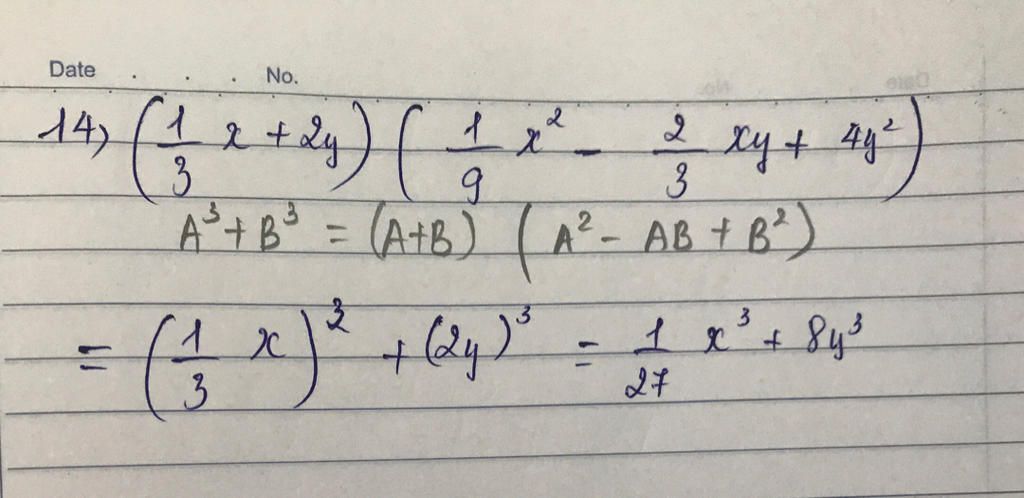 Date . . . No.
14) (1/3 x + 2y) (1/9 x² - 2/3 xy + 4y²)
A³ + B³ = (A+B) (A² - AB + B²)
= (1/3 x)³ + (2y)³ = 1/27 x³ + 8y³